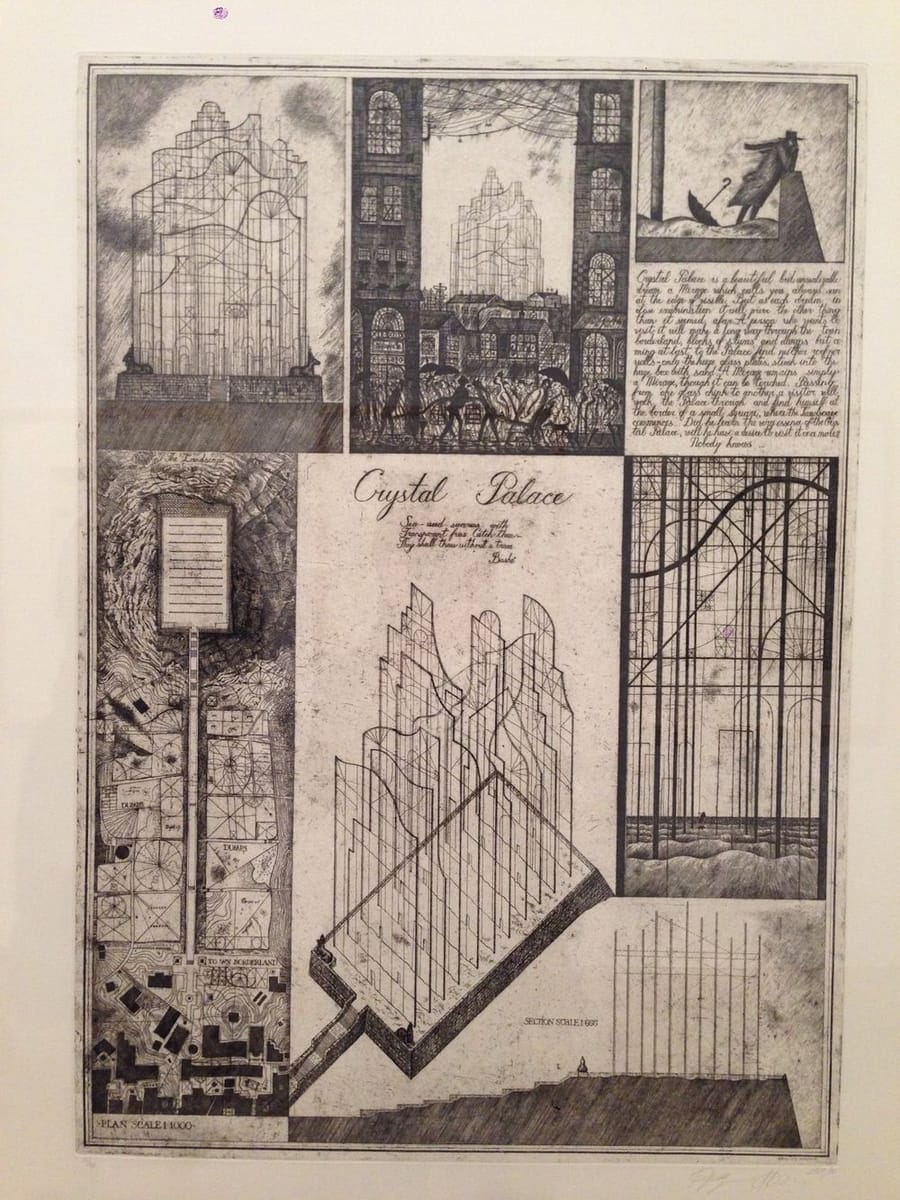 Crystal Palace is a beautiful but unrealizable
dream, a Mirage which calls you, always seen
at the edge of visible. But as each dream, in
close examination it will prove the other thing
than it seemed afar. A person who wants to
visit it will make a long way through the town
borderland, blocks of slums and dumps but co
ming at last to the Palace find neither roof nor
walls - only the huge glass plates, stuck into the
huge box with sand. A Mirage remains simply
a Mirage, though it can be touched. Passing
from one glass chink to another a visitor will
walk the Palace through and find himself at
the border of a small square, where the Landscape
commences. Did he learn the very essence of the Crys
tal Palace, will he have a desire to visit it once more?
Nobody knows ...
The Landscape
Crystal Palace
Sea - and sunrise with
Transparent
thou without a trace
Basho
DUMPS
DUMPS
TOWN BORDERLAND
SECTION SCALE 1:
PLAN SCALE 1:1000